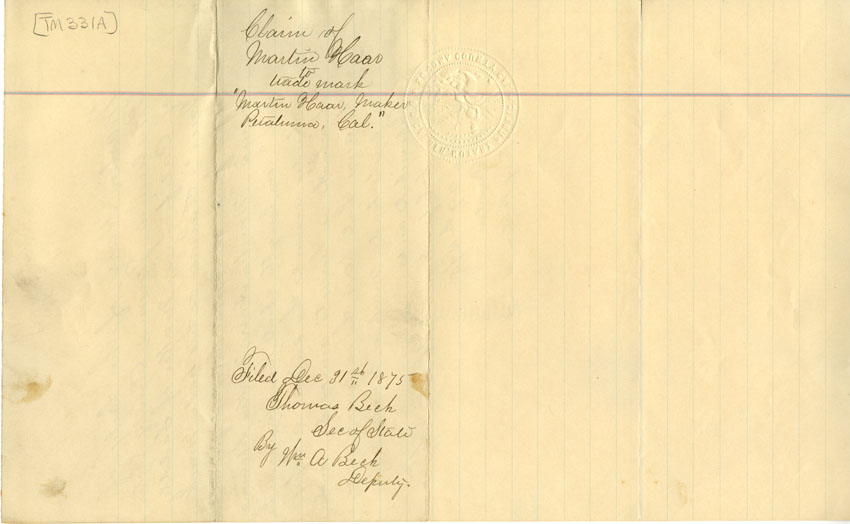 [TM331A]
Claim of
Martin Haar
to
trade mark
"Martin Haar, Maker
Petaluma, Cal."
Filed Dec 31st 1875
Thomas Beck
Sec of State
By Wm A Beck
Deputy.